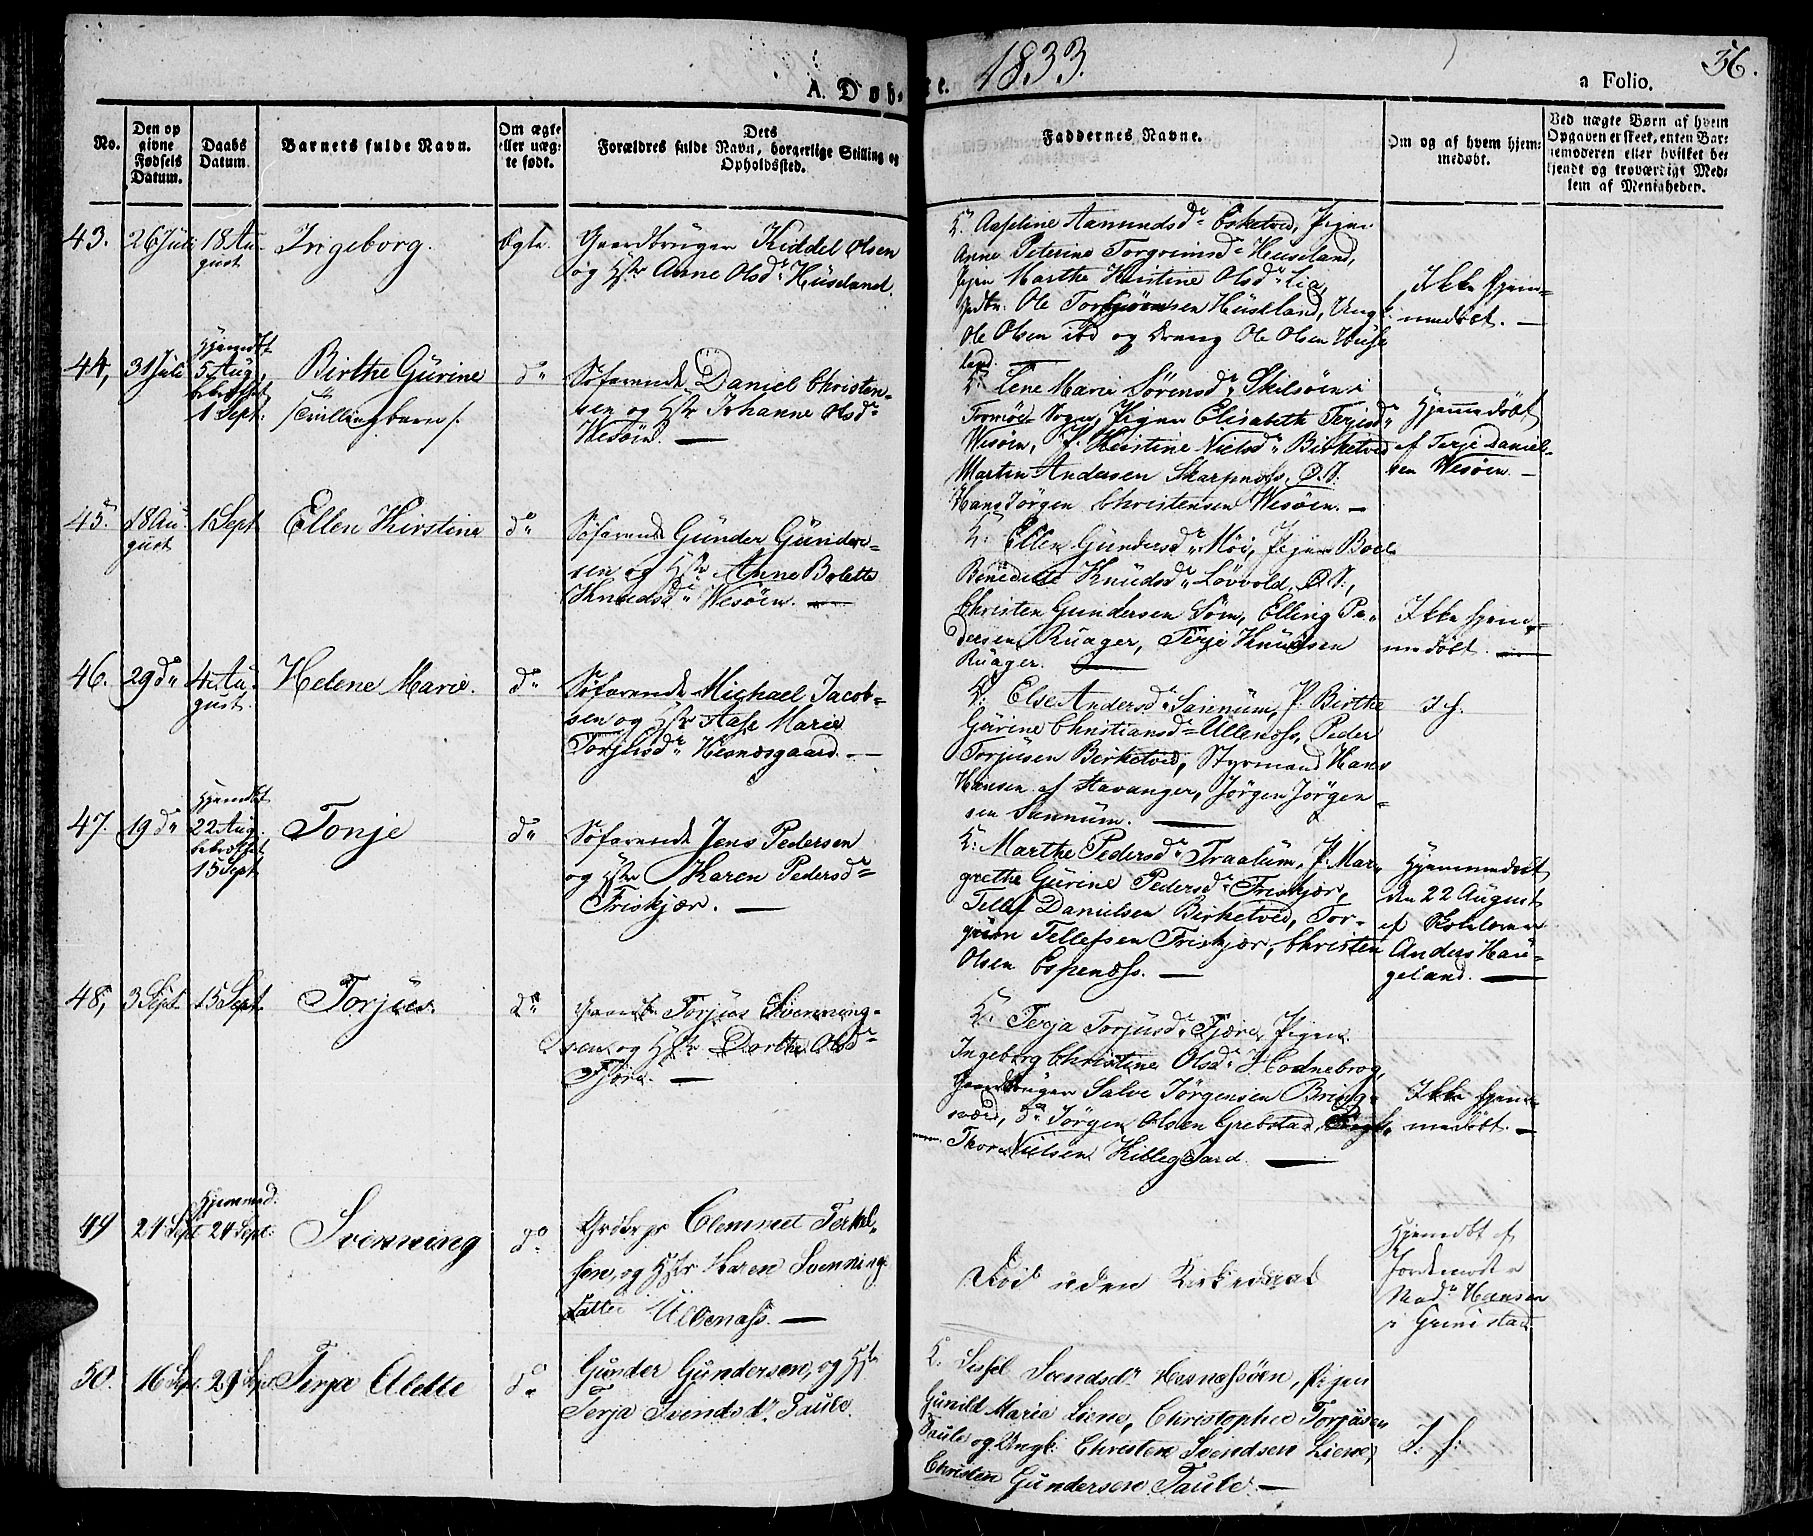 1833.
36.
A. Døbte.
a Folio.
No.
Den op
givne
Fødsels
Datum.
Daabs
Datum.
Barnets fulde Navn.
Om ægte
eller uæg-
te født.
Dets
Forældres fulde Navn, borgerlige Stilling og
Opholdssted.
Faddernes Navne.
Om og af hvem hjem-
medøbt.
Ved uægte Børn af hvem
Opgaven er skeet, enten Bar-
nemoderen eller hvilket be-
kjendt og troværdigt Med-
lem af Menigheden.
43. 26 Juli 18 Au-
gust
Ingeborg.
Ægte.
Gaardbruger Kiddel Olsen
og Hstr Anne Olsdr Hüseland.
K. Aaseline Aamundsdr Esketved, Pigen
Anne Peterine Torgrimsdr Heuseland,
Pigen Marthe Kirstine Olsdr Lia,
Gdbr. Ole Torbjørnsen Hüseland, Ungk.
Ole Olsen ibd og Dreng Ole Olsen Huse
land.
Ikke Hjem-
medøbt. —
44, 31 Juli
Hjemdbt
5 Aug.
bekræftet
1 Sept.
Birthe Gürine
/: Tvillingbarn /:
do
Søfarende Daniel Christen-
sen og Hstr Johanne Olsdr
Wesøen. —
K: Lene Marie Sørensdr Skilsøen i
Tromøe Sogn, Pigen Elisabeth Terjesdr
Wesøen, P. Kirstine Nielsdr Birketved
Martin Andersen Skarpnæss,
Hans Jörgen Christensen Wesøen. —
Hjemmedöbt
af Terje Daniel-
sen Wesøen. —
45. 18 Au-
gust
1 Sept
Ellen Kirstine
do
Søfarende Günder Günder-
sen og Hstr Anne Bolette
Knudsdr Wesøen. —
K: Ellen Gündersdr Moi, Pigen Boel
Benedicte Knüdsdr Løvvold,
Christen Gundersen Söm, Elling Pe-
dersen Ruager, Terje Knudsen
Ruager. —
Ikke hjem-
medøbt. —
46. 29 do
Au-
gust.
Helene Marie.
do
Søfarende Michael Jacob-
sen og Hstr Aase Marie
Torjusdr Hesnæsgaard. —
K: Else Andersdr Sannüm, P. Birthe
Gürine Christiansdr Ullenæss, Peder
Torjüsen Birketved, Styrmand Hans
Hansen af Stavanger, Jörgen Jörgen-
sen Sannüm. —
I H.
47. 19 do
Hjemdbt
22 Aug.
bekræftet
15 Sept
Tonje
do
Søfarende Jens Pedersen
og Hstr Karen Pedersdr
Friskjær. —
K: Marthe Pedersdr Traalüm, P. Mar-
grethe Gürine Pedersdr Friskjær,
Tellef Danielsen Birketved, Tor-
grim Tellefsen Friskjær, Christen
Olsen Espenæss. —
Hjemmedøbt
den 22 August
af Skolelærer
Anders Hau-
geland. —
48, 3 Sept. 15 Sept.
Torjus.
do
Gaardb. Torjus Svenning-
sen og Hstr Dorthe Olsdr
Fjøre. —
K: Terja Torjusdr Fjære, Pigen
Ingeborg Christine Olsdr Hodnebrog,
Gaardbruger Salve Jørgensen Bring-
sværd, do Jörgen Olsen Grebstad,
Thor Nielsen Killegaard. —
Ikke hjem-
medøbt. —
49 24 Sept
Hjemmed.
24 Sept.
Svenning
do
Grdbrgr Clemmet Terkel-
sen, og Hstr Karen Svennings
datter Ulbenæss. —
Død uden Kirkedaab
Hjemdøbt af
Jordemoder
Madm Hansen
i Grimstad.
50. 16 Sept. 29 Sept
Terja Alette
do
Gunder Gundersen, og Hstr
Terja Svendsdr Taule.
K. Sissel Svendsdr Hesnæssöen, Pigen
Gunild Maria Liene, Christopher Torjüsen
Taule og Ungk: Christen Svendsen Liene,
Christen Gundersen Taule. —
I: H: